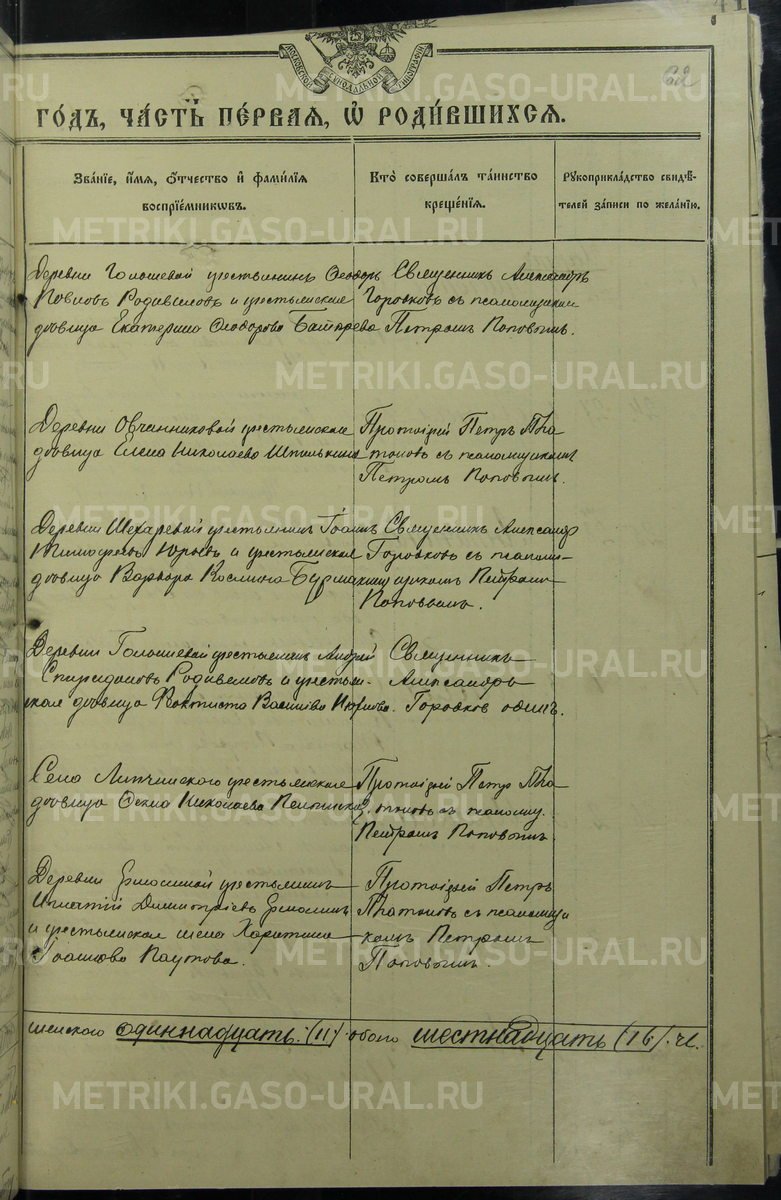 МОСКОВСКОЙ СѴНОДАЛЬНОЙ ТИПОГРАФІИ
62
ГО́ДЪ, ЧА́СТЬ ПЕ́РВАЯ, Ѿ РОДИ́ВШИХСЯ.
Зва́нїе, и҆́мя, ѻ҆́тчество и҆ фами́лїя
воспрїе́мникѡвъ.
Кто̀ соверша́лъ та́инство
креще́нїя.
Рꙋкоприкла́дство свидѣ́-
телей за́писи по жела́нїю.
Деревни Голошевой крестьянинъ Ѳеодоръ
Павловъ Родивиловъ и крестьянская
дѣвица Екатерина Ѳеодорова
Священникъ Александръ
Городковъ съ псаломщикомъ
Петромъ Поповымъ.
Деревни Овчинниковой крестьянская
дѣвица Елена Николаева Шпилькина
Протоіерей Петръ Пла
тоновъ съ псаломщикомъ
Петромъ Поповымъ.
Деревни крестьянинъ Іоаннъ
Тимофеевъ Юрьевъ и крестьянская
дѣвица Варвара Косьмина Бурмакина
Священникъ Александр
Городковъ съ псалом-
щикомъ Петромъ
Поповымъ.
Деревни Голошевой крестьянинъ Андрей
Спиридоновъ Родивиловъ и крестьян-
ская дѣвица Ѳеоктиста Васильева
Священникъ
Александръ
Городков одинъ.
Село Липчинского крестьянская
дѣвица Николаева
Протоіерей Петръ Пла
тоновъ съ псаломщ.
Петромъ Поповымъ.
Деревни Ермолиной крестьянинъ
Игнатій Димитріевъ Ермолинъ
и крестьянская жена Харитина
Іоаннова Паутова.
Протоіерей Петръ
Платоновъ съ псаломщи
комъ Петромъ
Поповымъ.
женского одиннадцать (11) обоего шестнадцать (16) ч.
METRIKI.GASO-URAL.RU